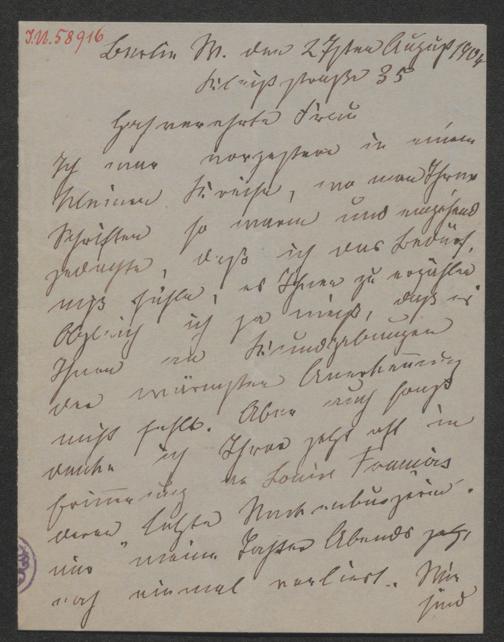 I.N. 58916
Berlin W. den 27sten August 1904
Kleiststraße 35
Hochverehrte Frau
Ich war vorgestern in einem
kleinen Kreise, wo man Ihrer
Schriften so warm und eingehend
gedachte, daß ich das Bedürf-
niß fühle, es Ihnen zu erzählen
Obgleich ich ja weiß, daß es
Ihnen an Kundgebungen
der wärmsten Anerkennung
nicht fehlt. Aber auch sonst
denke ich Ihrer jetzt oft in
Erinnerung an Louise François
deren letzte Reckenburgerin
mir meine Tochter Abends jetzt
noch einmal vorliest. Wir
sind